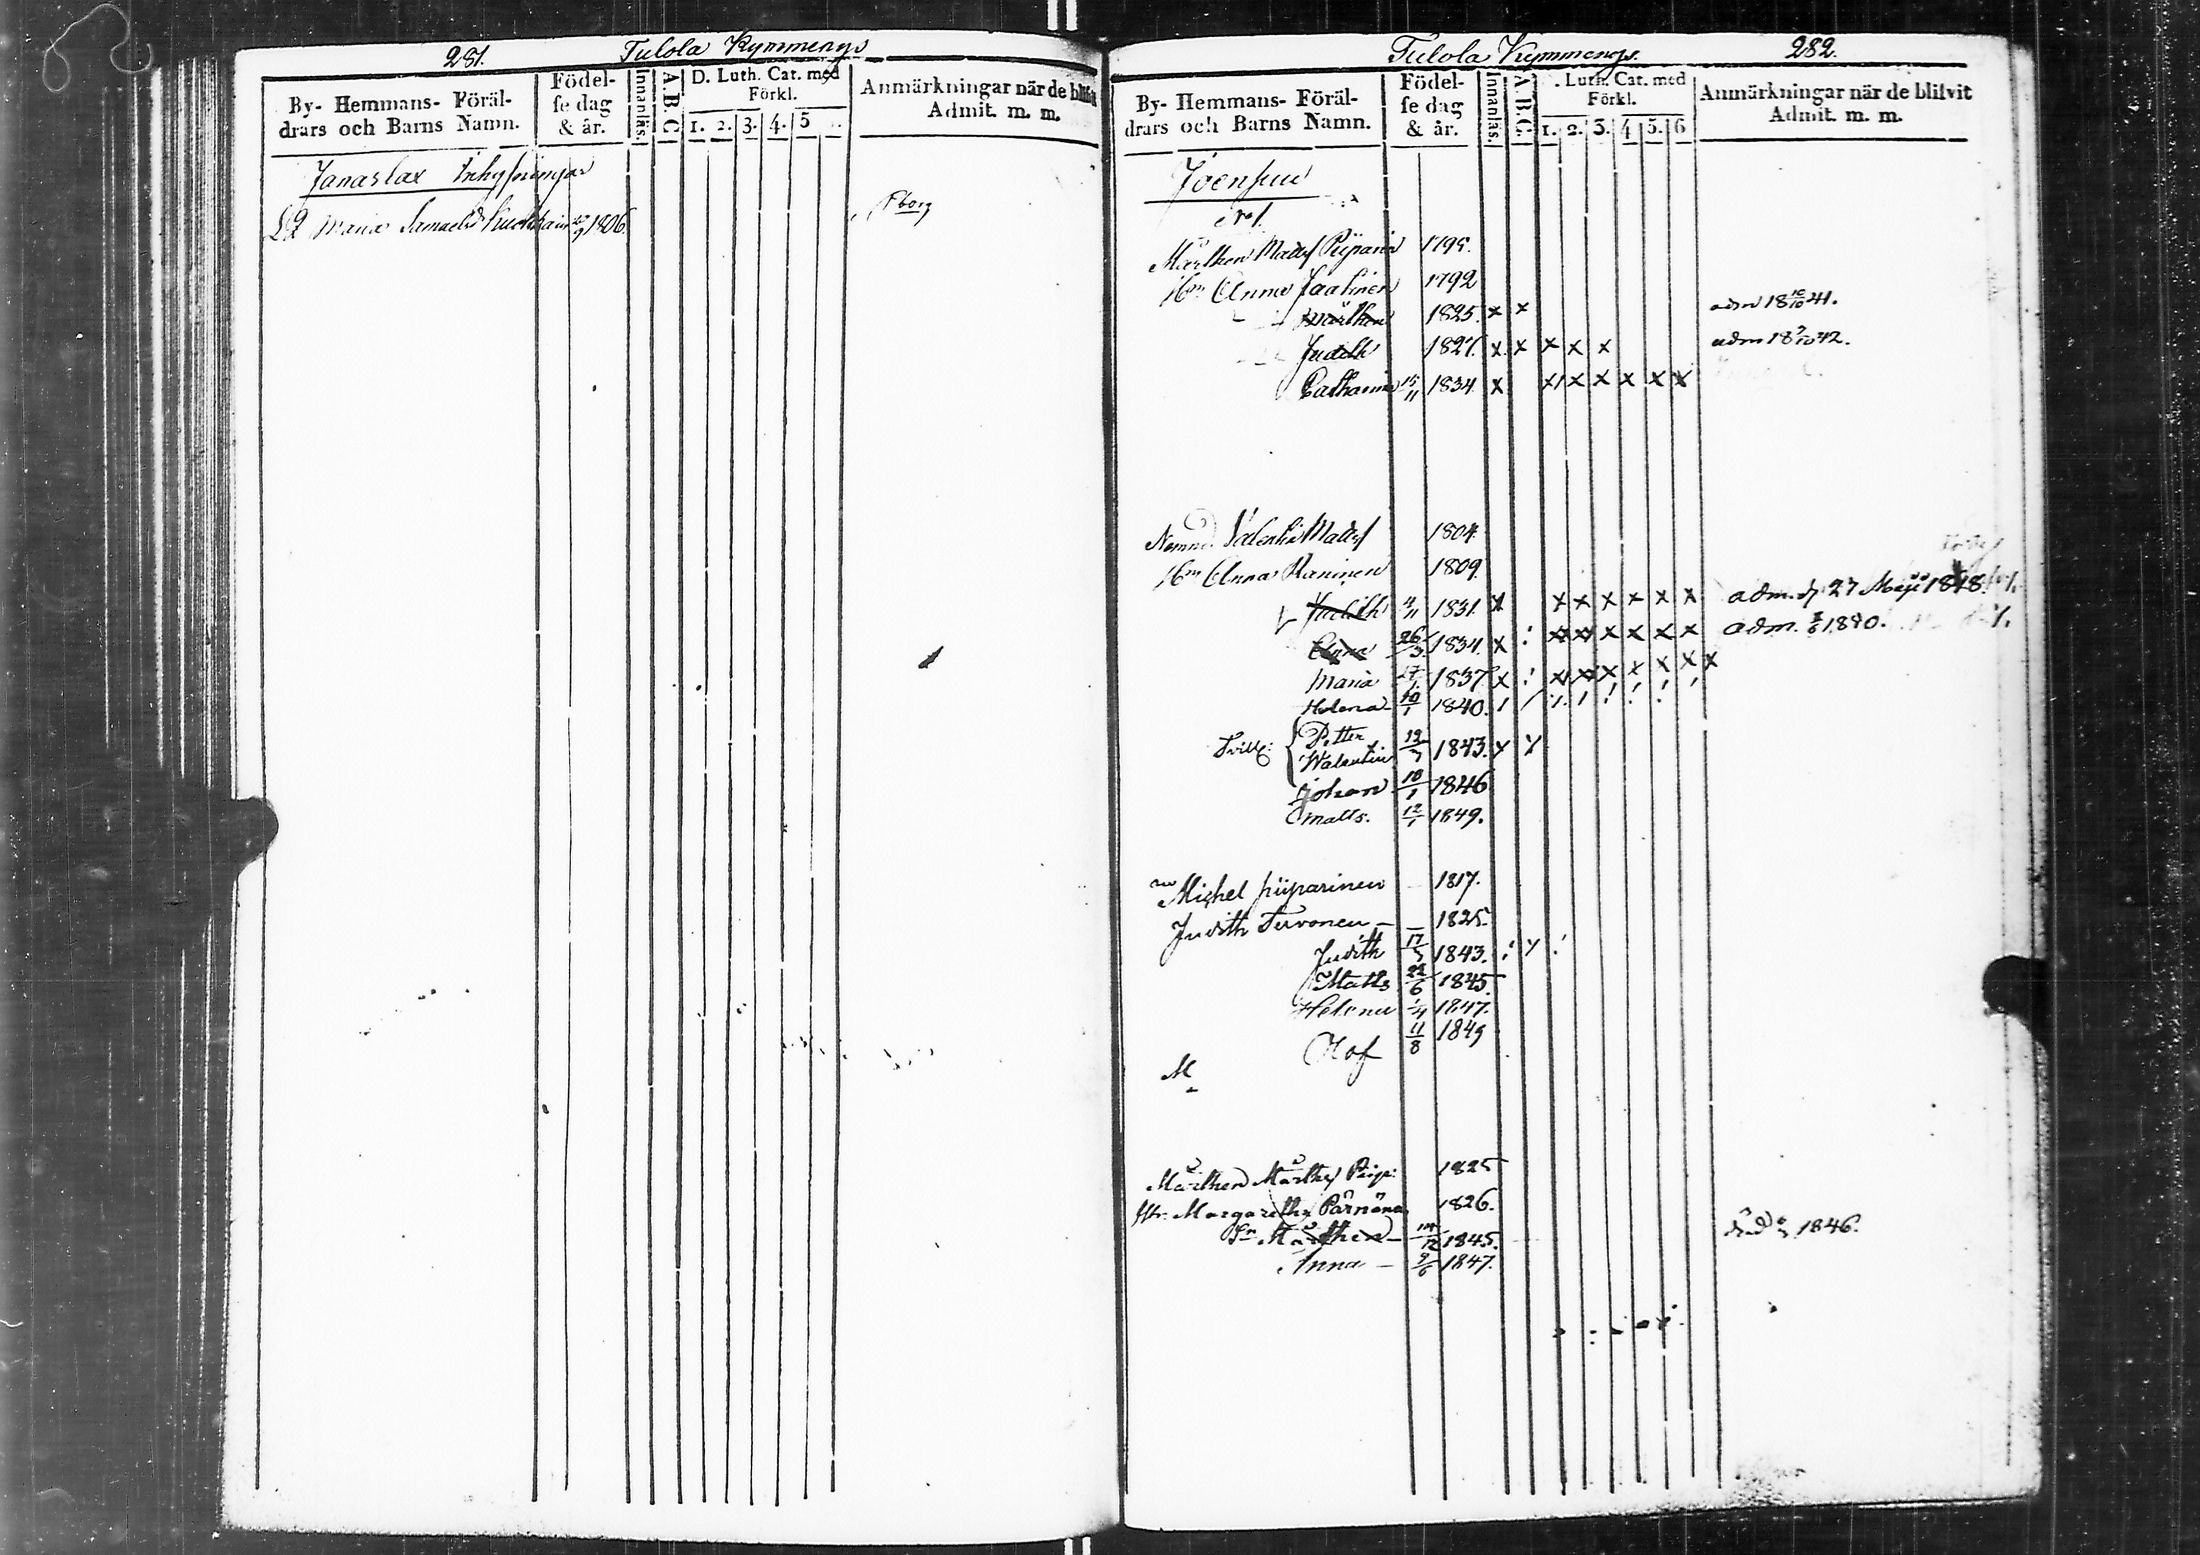 281. Tulola Kymmenegs
By- Hemmans- Föräl-
drars och Barns Namn.
Födel-
se dag
& år.
Innanläs.
A.B.C
D. Luth. Cat. med
Förkl.
1. 2. 3. 4. 5
Anmärkningar när de blifvit
Admit. m. m.
Janaslax Inhysningar
Maria Samuelsd 1806.
Tulola Kymmenegs. 282.
By- Hemmans- Föräl-
drars och Barns Namn.
Födel-
se dag
& år.
Innanläs.
A.B.C.
. Luth. Cat. med
Förkl.
1. 2. 3. 4 5. 6
Anmärkningar när de blifvit
Admit. m. m.
Joensuu
No 1.
Mårthen Matts 1795.
Hu Anna Jaatinen 1792
Mårthen 1825. x x adm 18 10/10 41.
Judith 1827. x x x x x adm 18 9/10 42.
Catharina 15/11 1834. x x x x x x x
Valentin Matts 1804.
Hu Anna Raninen 1809.
Judith 4/11 1831. x x x x x x x adm. d. 27 Maji 1848.
Anna 26/3 1834. x x x x x x x adm. 1850.
Maria 1837 x x x x x x x
Helena 10/1 1840.
Tvill: { Petter
Walentin 19/7 1843.
Johan 10/1 1846
Matts. 12/1 1849.
Michel Piiparinen 1817.
Judith Tervonen 1825.
Judith 17/5 1843.
Matts 22/6 1845
Helena 1/4 1847.
Olof 11/8 1849
M
Mårthen Mårthens Piip: 1825
Hu. Margaretha Pärnäna 1826.
Sn Mårthen 14/12 1845. död 1846.
Anna 9/6 1847.